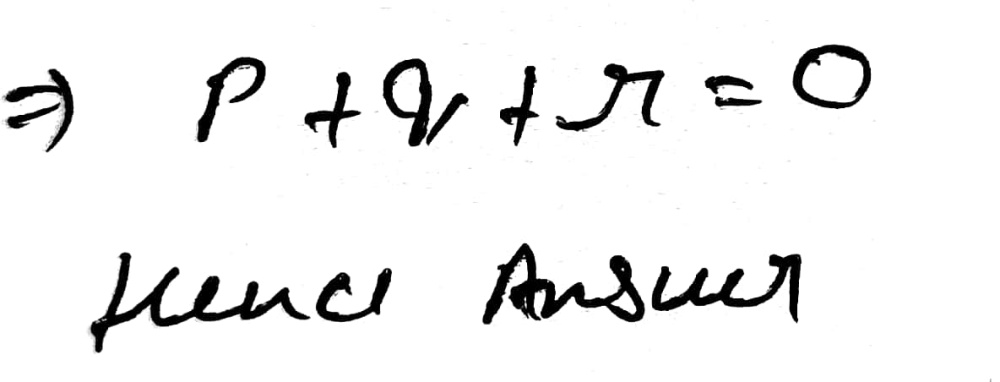 ⇒ P + q + r = 0
Hence Answer